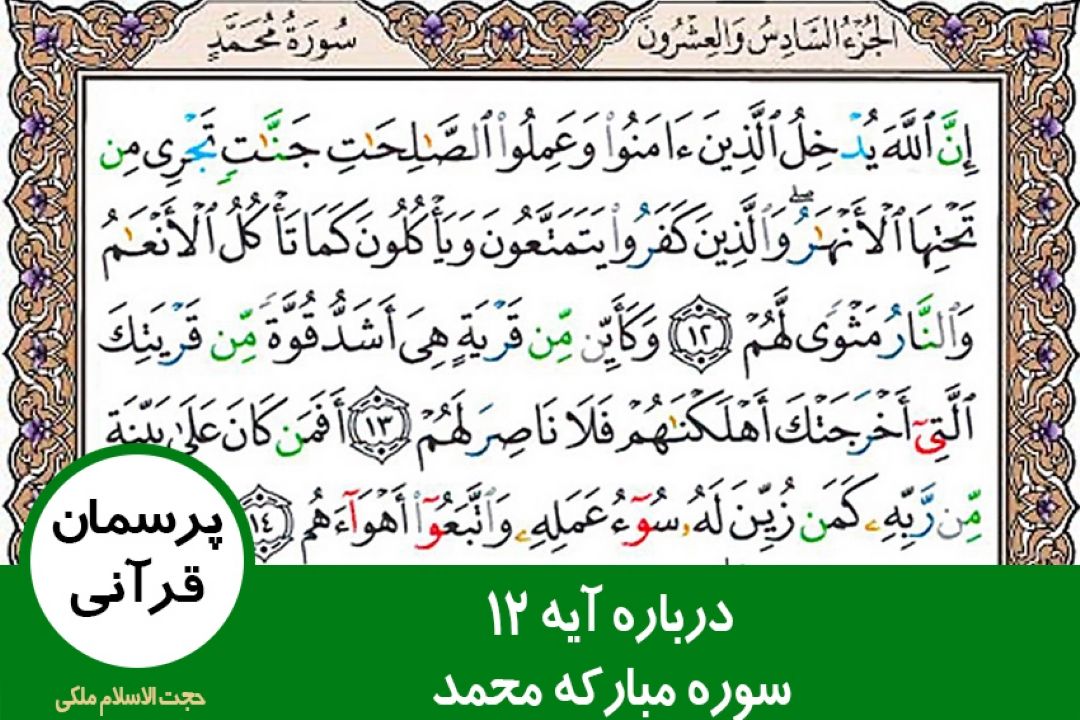 الجُزْءُ السَّادِسُ وَالعِشْرُونَ
سُورَةُ مُحَمَّدٍ
إِنَّ ٱللَّهَ يُدۡخِلُ ٱلَّذِينَ ءَامَنُواْ وَعَمِلُواْ ٱلصَّـٰلِحَـٰتِ جَنَّـٰتٖ تَجۡرِي مِن
تَحۡتِهَا ٱلۡأَنۡهَـٰرُۖ وَٱلَّذِينَ كَفَرُواْ يَتَمَتَّعُونَ وَيَأۡكُلُونَ كَمَا تَأۡكُلُ ٱلۡأَنۡعَـٰمُ
وَٱلنَّارُ مَثۡوٗى لَّهُمۡ ١٢ وَكَأَيِّن مِّن قَرۡيَةٍ هِيَ أَشَدُّ قُوَّةٗ مِّن قَرۡيَتِكَ
ٱلَّتِيٓ أَخۡرَجَتۡكَ أَهۡلَكۡنَـٰهُمۡ فَلَا نَاصِرَ لَهُمۡ ١٣ أَفَمَن كَانَ عَلَىٰ بَيِّنَةٖ
مِّن رَّبِّهِۦ كَمَن زُيِّنَ لَهُۥ سُوٓءُ عَمَلِهِۦ وَٱتَّبَعُوٓاْ أَهۡوَآءَهُم ١٤
پرسمان
قرآنی
درباره آیه ١٢
سوره مبارکه محمد
حجت الاسلام ملکی